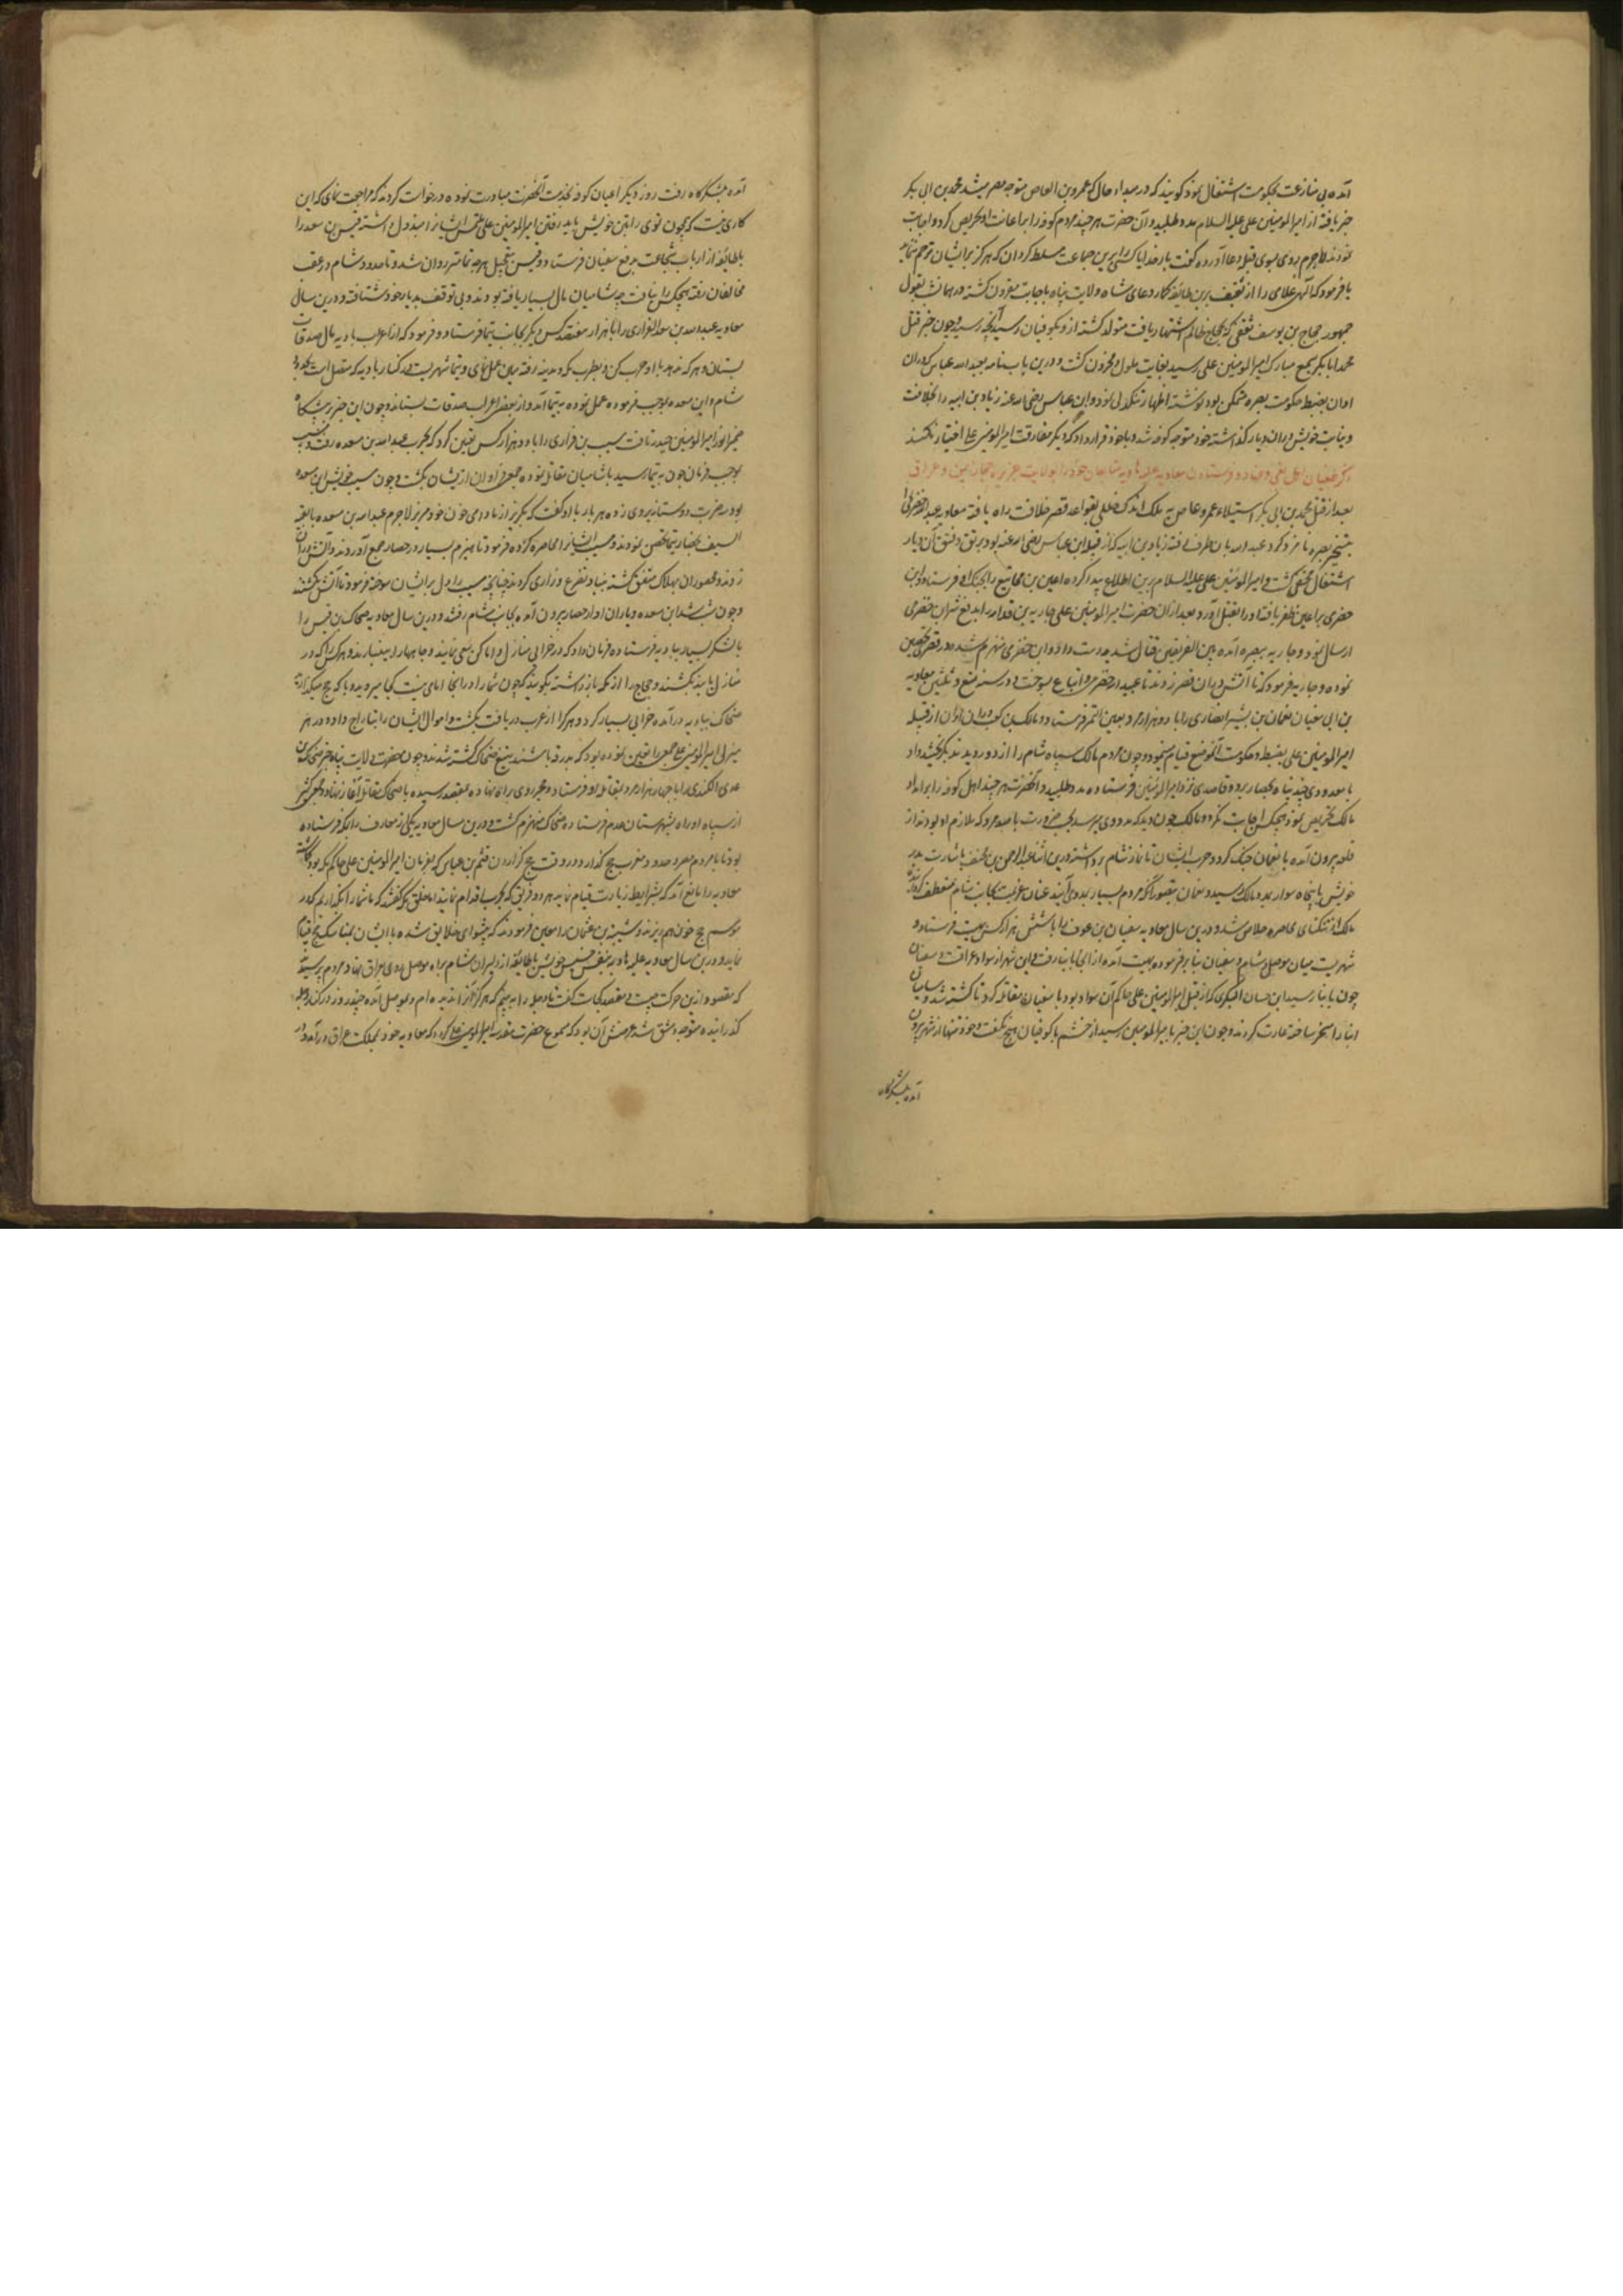 آمده بی منازعت بحکومت اشتغال نمود گویند که در مبداء حال که عمرو بن العاص متوجه مصر میشد محمد بن ابی بکر
خبر یافته از امیرالمومنین علی علیه السلام مدد طلبید و آن حضرت هر چند مردم کوفه را بر اعانت او تحریص کرد و اجابت
نمودند لاجرم روی بسوی قبله دعا آورده گفت بار خدایا کسی را برین جماعت مسلط گردان که هرگز بر ایشان ترحم ننماید
یا فرمود که الهی غلامی را از ثقیف برین طایفه گمار دعای شاه ولایت پناه باجابت مقرون گشته در همان شب بقول
جمهور حجاج بن یوسف ثقفی که بحجاج ظالم اشتهار یافت متولد گشته ازو بکوفیان رسید آنچه رسید و چون خبر قتل
محمد ابابکر بسمع مبارک امیرالمومنین علی رسید بغایت ملول و محزون گشت و درین باب نامه بعبدالله عباس که در آن
اوان بضبط حکومت بصره متمکن بود نوشته اظهار تنگدلی نمود و ابن عباس رضی الله عنه زیاد بن ابیه را بخلافت
و نیابت خویش در آن دیار گذاشته خود متوجه کوفه شد و با خود قرار داد که دیگر مفارقت امیرالمومنین علی اختیار نکند
ذکر طغیان اهل بغی و عناد و فرستادن معاویه علیه هاویه متابعان خود را بولایت جزیره و حجاز و یمن و عراق
بعد از قتل محمد بن ابی بکر و استیلاء عمرو عاص به ملک اندک خللی بقواعد قصر خلافت راه یافته معاویه عبدالله حضرمی را
بتسخیر بصره نامزد کرد عبدالله بآن طرف رفته زیاد بن ابیه که از قبل ابن عباس رضی الله عنه بود برتق و فتق آن دیار
اشتغال مختفی گشت و امیرالمومنین علی علیه السلام برین اطلاع پیدا کرده اعین بن مجاشع را بجنگ او فرستاد و ابن
حضرمی بر اعین ظفر یافته او را بقتل آورد و بعد از آن حضرت امیرالمومنین علی جاریه بن قدامه را بدفع شر ابن حضرمی
ارسال نمود و جاریه ببصره آمده بین الفریقین قتال شدید دست داد و ابن حضرمی منهزم شده در قصری تحصن
نموده و جاریه فرمود که تا آتش در آن قصر زدند تا عبدالله حضرمی و اتباع بسوخت و در سنه تسع و ثلثین معاویه
بن ابی سفیان نعمان بن بشیر انصاری را با دو هزار مرد بعین التمر فرستاد و مالک بن کعب در آن اوان از قبل
امیرالمومنین علی بضبط و حکومت آن موضع قیام مینمود و چون مردم مالک سپاه شام را از دور دیدند
با معدودی چند پناه بحصار برد و قاصدی نزد امیرالمومنین فرستاده مدد طلبید و آنحضرت هر چند اهل کوفه را بر امداد
مالک تحریص نمود هیچکس اجابت نکرد و مالک چون دید که مددی نمیرسد بحسب ضرورت با صد مرد که ملازم او بودند از
قلعه بیرون آمده با نعمان جنگ کرد و حرب ایشان تا نماز شام برداشته درین اثنا عبدالرحمن بن مخنف باشارت پدر
خویش با پنجاه سوار بمدد مالک رسید و نعمان بتصور آنکه مردم بسیار بمدد می آیند عنان عزیمت بجانب شام منعطف گردانید
مالک از تنگنای محاصره خلاص شد و درین سال معاویه سفیان بن عوف را با شش هزار کس بهیت فرستاد و
شهریست میان موصل و شام و سفیان بنابر فرموده بهیت آمده از آنجا بانبار رفت و این شهر از سواد عراقست و سفیان
چون بانبار رسید ابن حسان البکری که از قبل امیرالمومنین علی حاکم آن سواد بود با سفیان مقاتله کرد تا کشته شد و شامیان
انبار را مسخر ساخته غارت کردند و چون این خبر بامیرالمومنین رسید از خشم با کوفیان هیچ نگفت و خود تنها از شهر بیرون
آمده بلشکرگاه
آمده بلشکرگاه رفت روز دیگر اعیان کوفه بخدمت آنحضرت مبادرت نموده درخواست کردند که مراجعت نمای که این
کاری نیست که بچون توئی را بتن خویش باید رفتن امیرالمومنین علی ملتمس ایشان را مبذول داشته قیس بن سعد را
با طایفه از ارباب شجاعت بدفع سفیان فرستاد و قیس بتعجیل هر چه تمامتر روان شد و تا حدود شام در عقب
مخالفان رفته هیچکس را نیافت چه شامیان مال بسیار یافته بودند و بی توقف بدیار خود شتافته و درین سال
معاویه عبدالله بن مسعده الفزاری را با هزار و هفتصد کس دیگر بجانب تیما فرستاد و فرمود که از اعراب بادیه مال صدقات
بستان و هر که ندهد با او حرب کن و بطرف مکه و مدینه رفته همین عمل نمای و تیما شهریست در کنار بادیه که متصل است بحدود
شام و ابن مسعده بموجب فرموده عمل نموده به تیما آمد و از بعض اعراب صدقات بستاند و چون این خبر
امیرالمومنین حیدر تافت مسیب بن فزاری را با دو هزار کس تعیین کرد که بحرب عبدالله بن مسعده رفت و مسیب
بموجب فرمان چون به تیما رسید با شامیان مقاتله نموده جمعی فراوان از ایشان بکشت و چون مسیب خویش ابن مسعده
بود در ضرب دوستانه بروی زده هر بار با او گفت که بگریز از ما و آدمی خون خود مریز لاجرم عبدالله بن مسعده با بقیة
السیف بحصار تیما متحصن نمودند و مسیب ایشان را محاصره کرده فرمود تا هیزم بسیار در حصار جمع آوردند و آتش در آن
زدند و محصوران بهلاک متیقن گشته بنیاد تضرع و زاری کردند چنانچه مسیب را دل بر ایشان سوخته فرمود تا آتش کشتند
و چون شب شد ابن مسعده و یاران او از حصار بیرون آمده بجانب شام رفتند و درین سال معاویه ضحاک بن قیس را
با لشکر بسیار ببادیه فرستاده فرمان داد که در خرابی منازل و اماکن سعی نمایند و چاهها را بینبارند و هر کس را که در
منازل یابند بکشند و حجاج را از مکه باز داشته بگویند که چون شما را در آنجا امامی نیست کجا میروید و با که حج میگذارید
ضحاک ببادیه درآمده خرابی بسیار کرد و هر کرا از عرب دریافت بکشت و اموال ایشان را بتاراج داده و در هر
منزل امیرالمومنین علی جمعی را تعیین نموده بود که بدرقه باشند بتیغ ضحاک کشته شدند و چون حضرت ولایت پناه خبر ضحاک
عدی الکندی را با چهار هزار مرد بمقاتله او فرستاد و حجر روی براه نهاده بمقصد رسیده با ضحاک مقاتله آغاز نهاد و جمعی کثیر
از سپاه او راه بشهرستان عدم فرستاده ضحاک منهزم گشت و درین سال معاویه یکی از معارف را بمکه فرستاده
بود تا با مردم مصر و حدود مغرب حج گذارد و در وقت حج گزاردن قثم بن عباس که بفرمان امیرالمومنین علی حاکم مکه بود
معاویه را مانع آمد که بشرایط زیارت قیام نماید هر دو فریق که بحرب اقدام نمایند اما خلق مکه گفتند که ما شما را نگذاریم که در
موسم حج خون هم ریزند و شیبه بن عثمان را معین فرمودند که پیشوای خلایق شده با ایشان بمناسک حج قیام
نماید و درین سال معاویه علیه هاویه بنفس خسیس خویش با طایفه از دلیران شام براه موصل روی بعراق نهاد و مردم پرسیدند
که مقصود ازین حرکت چیست و مقصد کجاست گفت تا دجله را ببینم که هرگز آنرا ندیده ام و بموصل آمده چند روز در کنار دجله
گذرانیده متوجه دمشق شد و غرضش آن بود که مسموع حضرت مقدسه امیرالمومنین علی گردد که معاویه خود بمملکت عراق درآمد و